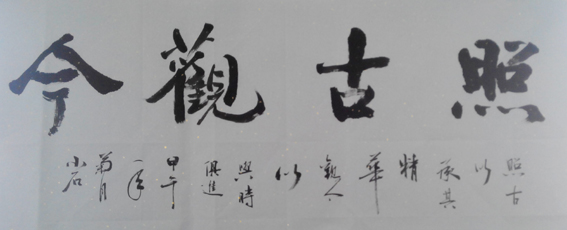 照古觀今
照古
以
承其
精
華
觀今
以
與時
俱進
甲午
年
菊月
小石